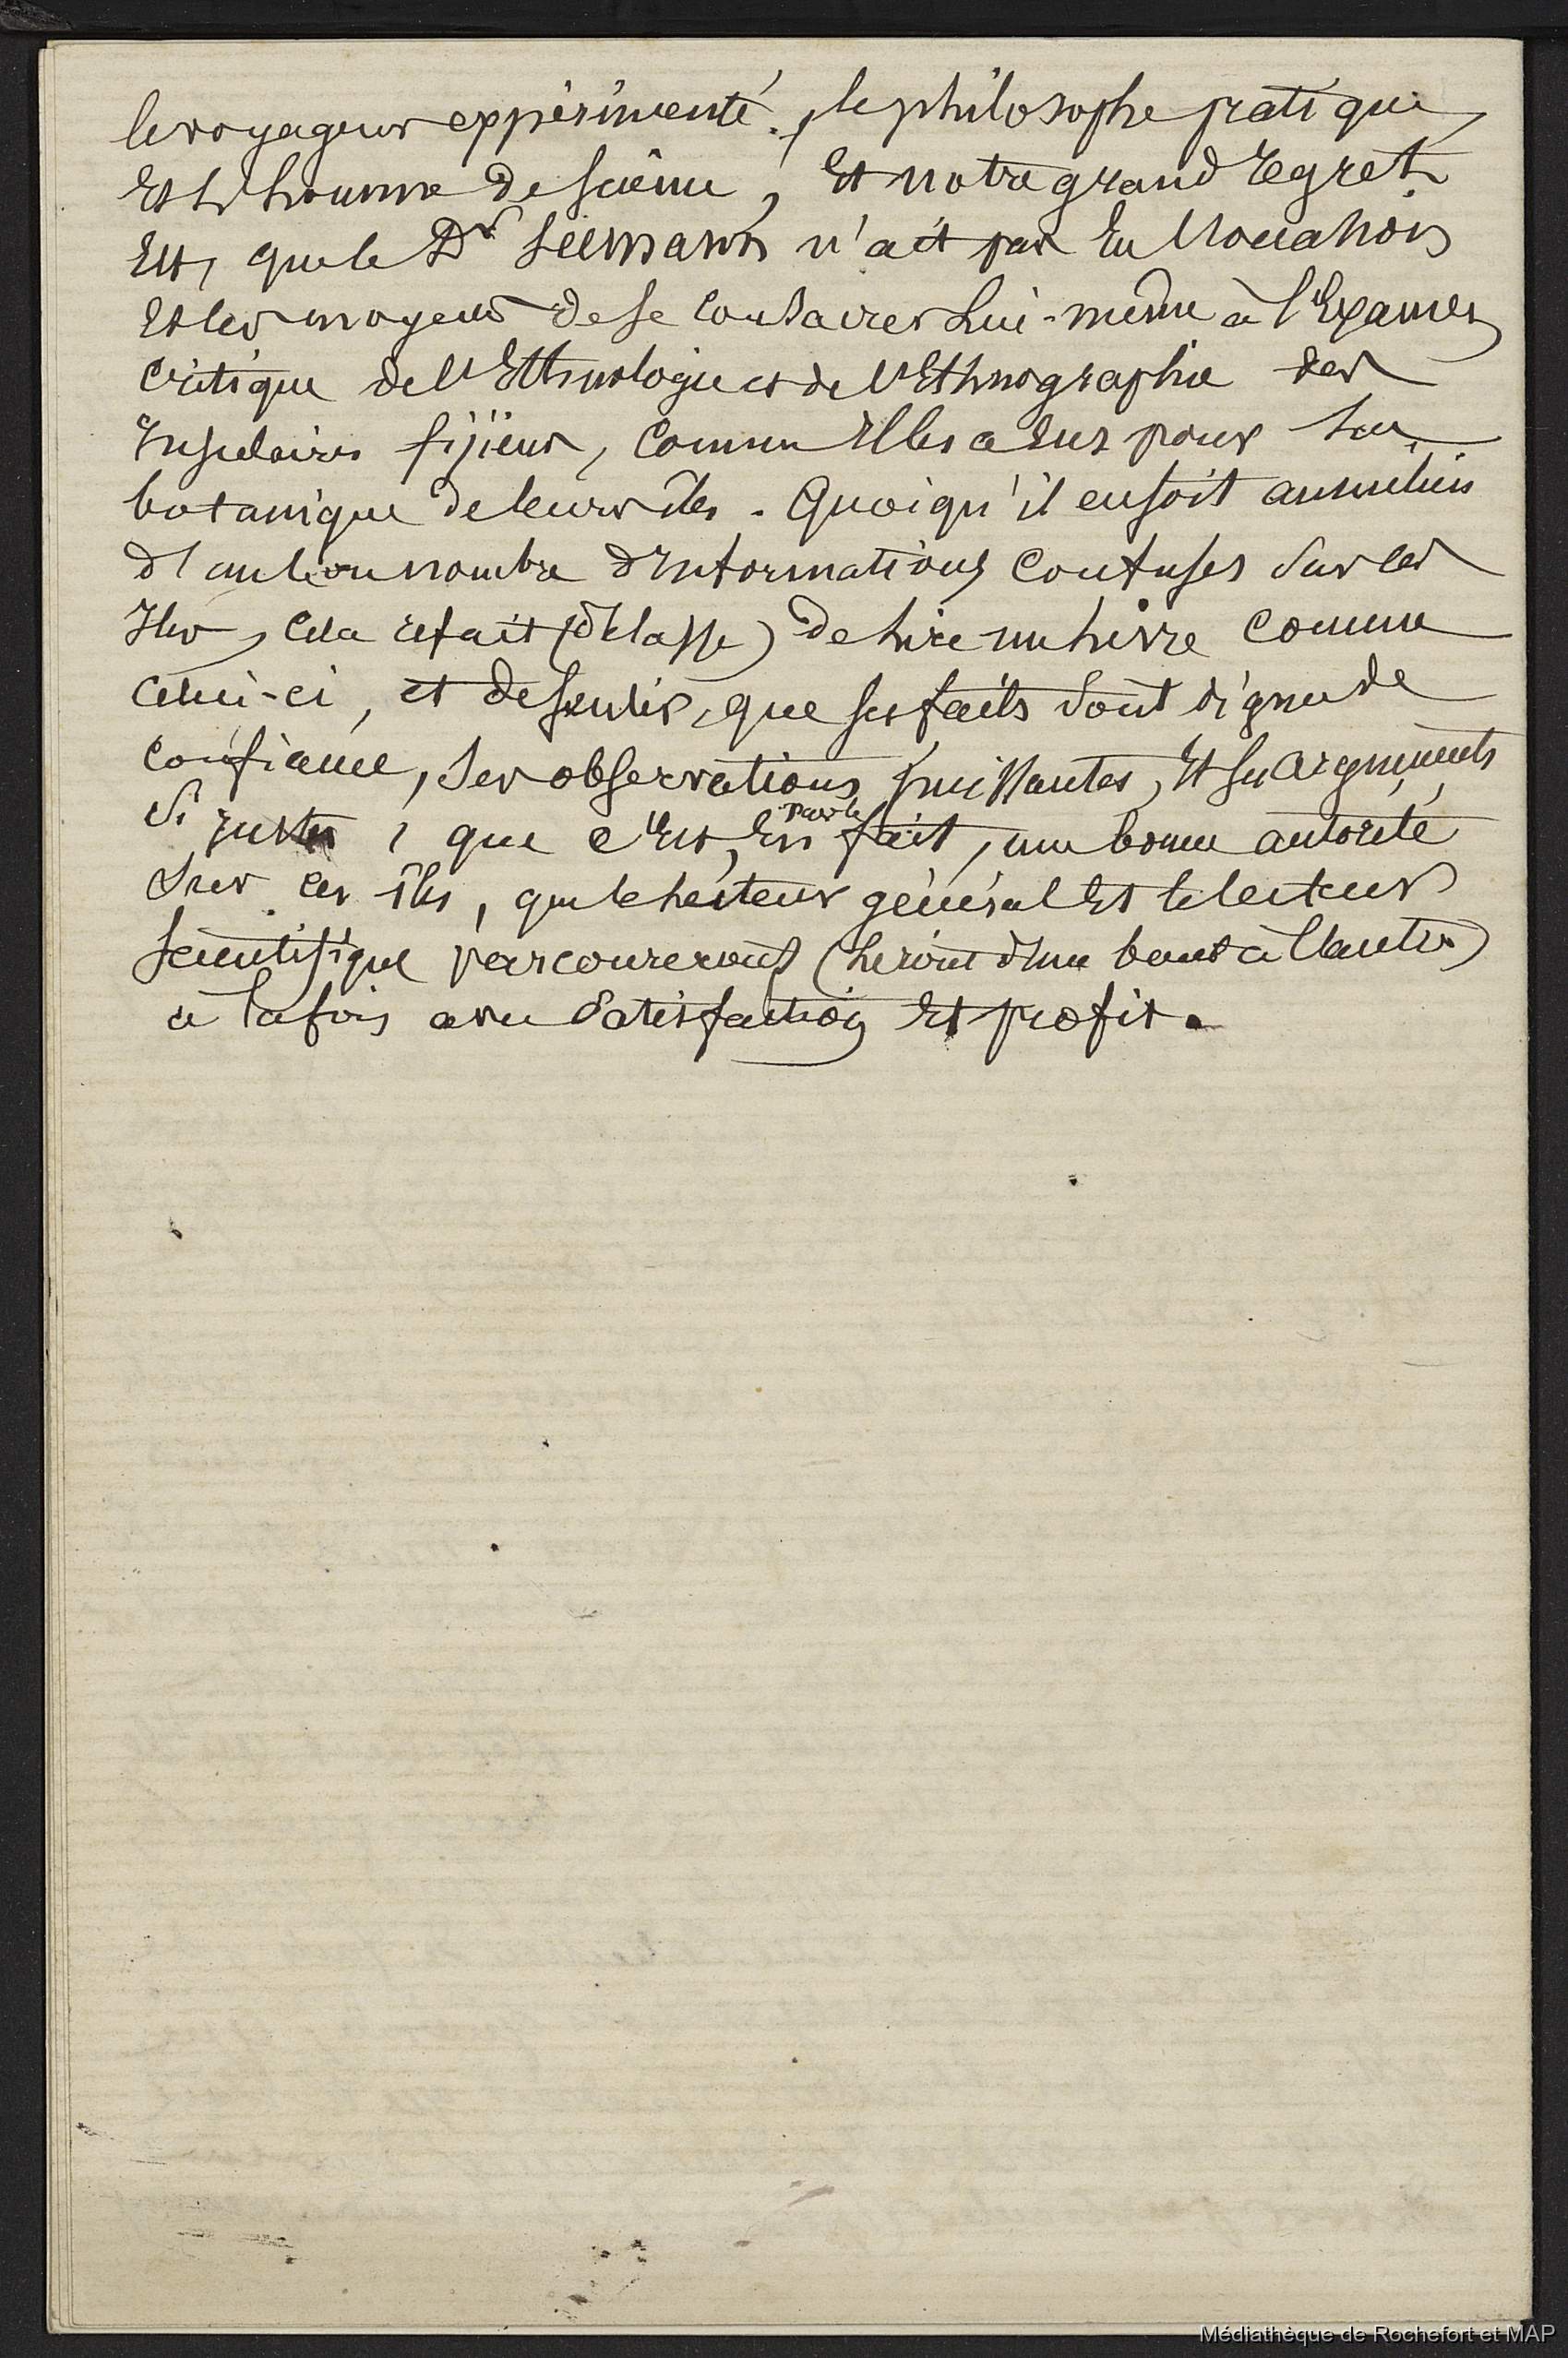 le voyageur expérimenté, le philosophe pratique
Et l'homme de science, Et notre grand Regret
Est, que le Dr Seemann n'ait pas Eu l'location
Et les moyens de se consacrer Lui-même à l'Examen
critique de l'Ethnologie et de l'Ethnographie des
Insulaires fijiens, comme Il les a Eus pour la
botanique de leurs îles. Quoiqu'il en soit au milieu
d'un bon nombre d'Informations confuses sur les
Iles, cela refait (délasse) de Lire un Livre comme
celui-ci, et de sentir, que ses faits sont dignes de
confiance, ses observations puissantes, Et ses arguments
si justes, que c'Est, En par le fait, une bonne autorité
Sur ces îles, que le Lecteur général Et le lecteur
scientifique parcoureront (Liront d'un bout à l'autre)
à la fois avec Satisfaction Et profit.
Médiathèque de Rochefort et MAP